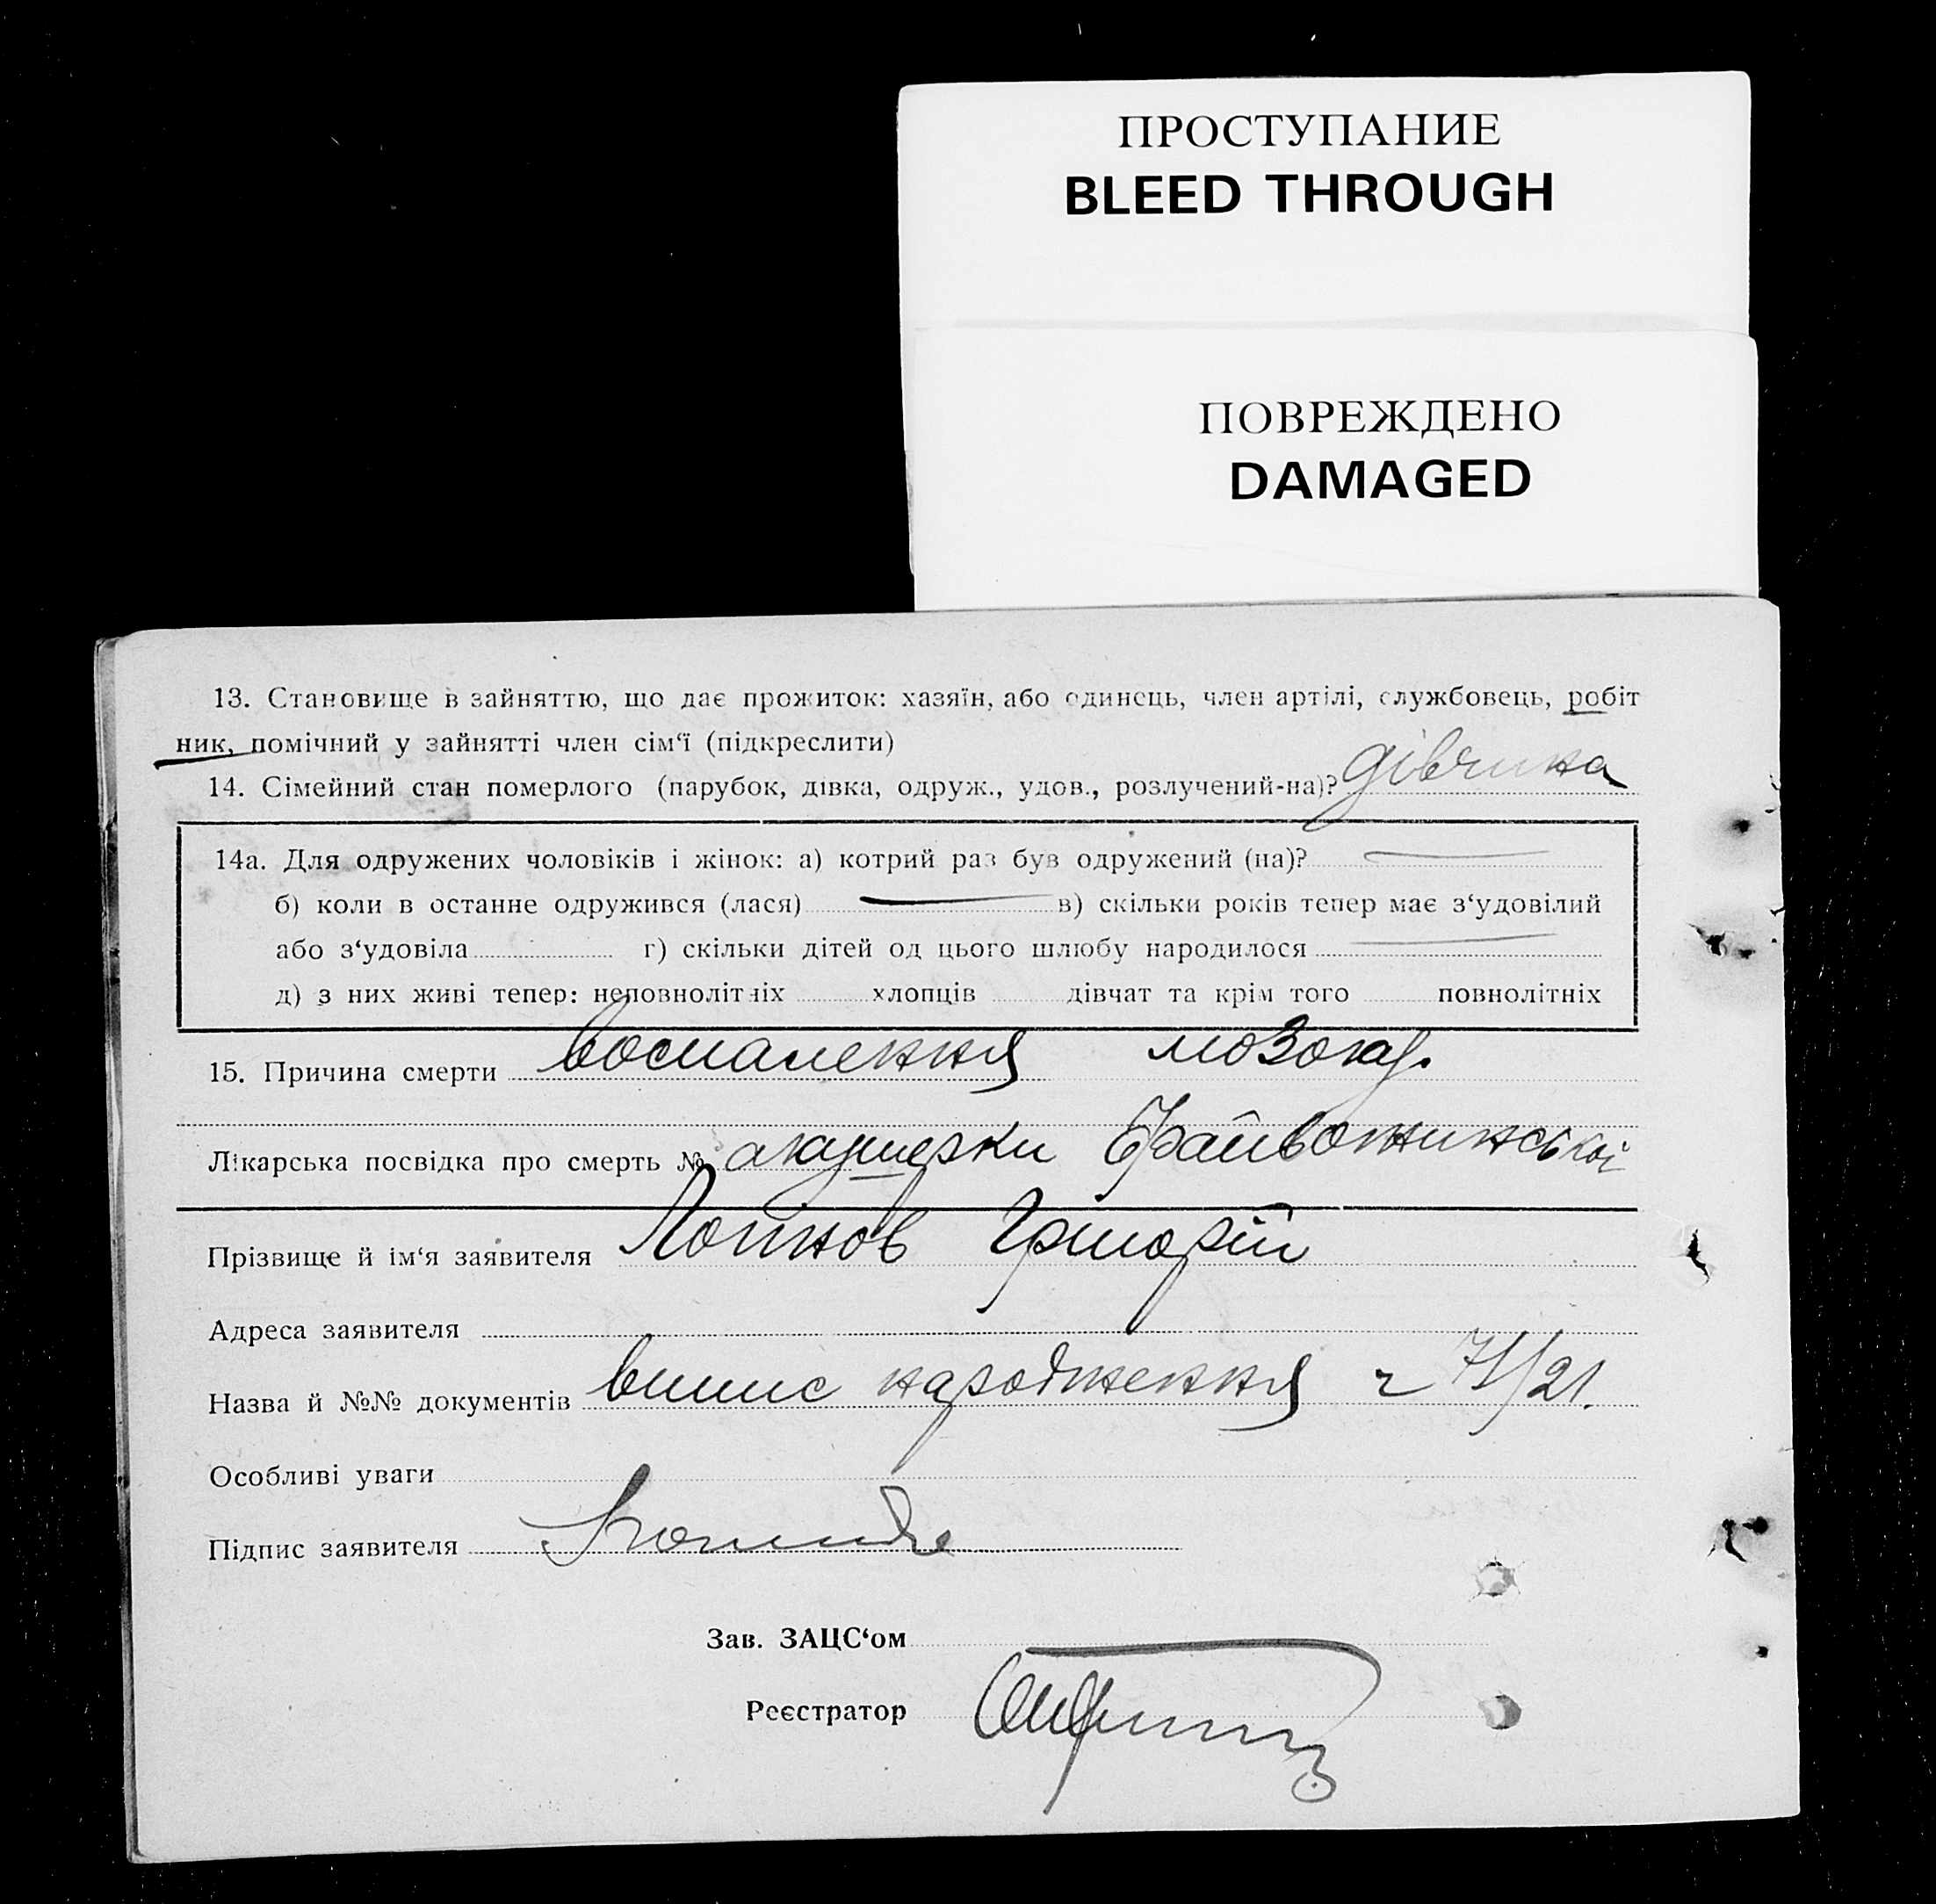 ПРОСТУПАНИЕ
BLEED THROUGH
ПОВРЕЖДЕНО
DAMAGED
13. Становище в зайняттю, що дає прожиток: хазяїн, або одинець, член артілі, службовець, робіт
ник, помічний у зайнятті член сім‘ї (підкреслити)
14. Сімейний стан померлого (парубок, дівка, одруж., удов., розлучений-на)? дівчина
14а. Для одружених чоловіків і жінок: а) котрий раз був одружений (на)?
б) коли в останне одружився (лася) в) скільки років тепер має з‘удовілий
або з‘удовіла г) скільки дітей од цього шлюбу народилося
д) з них живі тепер: неповнолітніх хлопців дівчат та крім того повнолітніх
15. Причина смерти воспалення мозоку.
Лікарська посвідка про смерть № акушерки
Прізвище й ім‘я заявителя Григорій
Адреса заявителя
Назва й №№ документів випис народження 71/21.
Особливі уваги
Підпис заявителя
Зав. ЗАЦС‘ом
Реєстратор